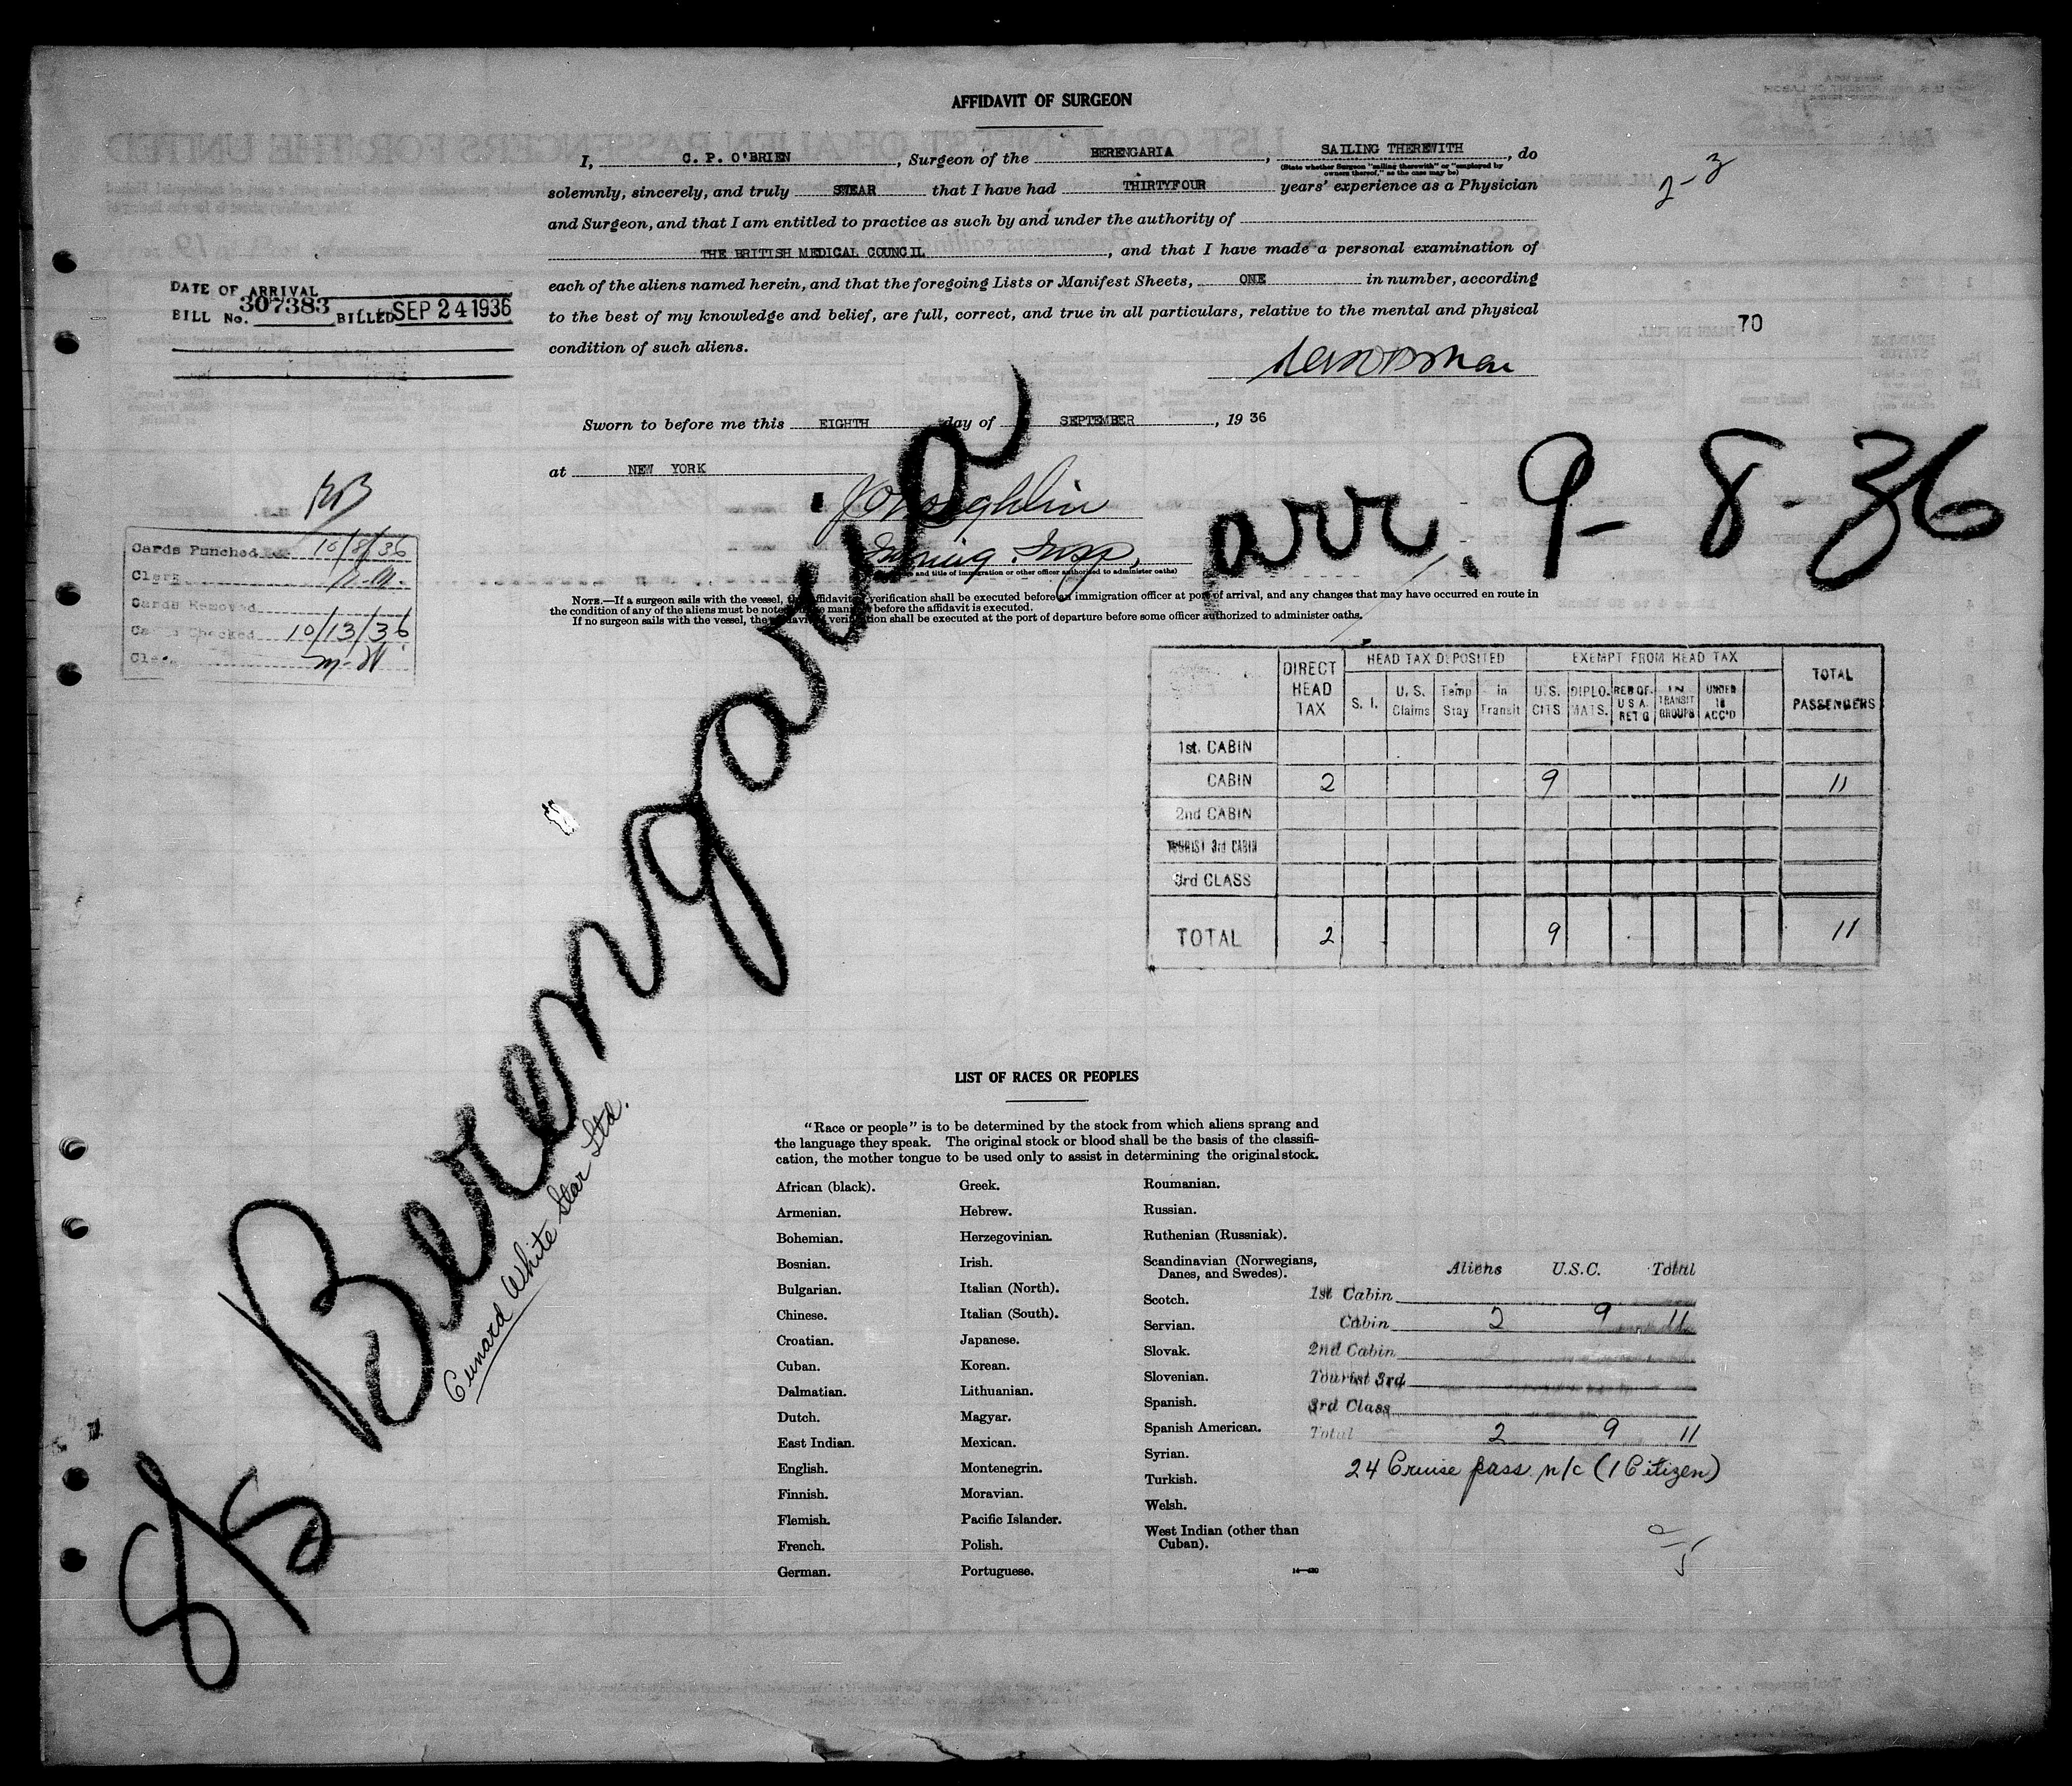 AFFIDAVIT OF SURGEON
I, C. P. O'BRIEN, Surgeon of the BERENGARIA, SAILING THEREWITH, do
(State whether Surgeon "sailing therewith" or "employed by
owners thereof," as the case may be)
solemnly, sincerely, and truly SWEAR that I have had THIRTYFOUR years' experience as a Physician
and Surgeon, and that I am entitled to practice as such by and under the authority of
THE BRITISH MEDICAL COUNCIL, and that I have made a personal examination of
each of the aliens named herein, and that the foregoing Lists or Manifest Sheets, ONE in number, according
to the best of my knowledge and belief, are full, correct, and true in all particulars, relative to the mental and physical
condition of such aliens.
2-3
70
DATE OF ARRIVAL
BILL No. 307383 BILLED SEP 24 1936
Sworn to before me this EIGHTH day of SEPTEMBER, 19 36
at NEW YORK
Insp.
and title of immigration or other officer authorized to administer oaths)
arr. 9-8-36
Cards Punched 10/8/36
Clerk
Cards Removed
Cards Checked 10/13/36
Clerk
NOTE.—If a surgeon sails with the vessel, the affidavit verification shall be executed before an immigration officer at port of arrival, and any changes that may have occurred en route in
the condition of any of the aliens must be noted manifest before the affidavit is executed.
If no surgeon sails with the vessel, the affidavit verification shall be executed at the port of departure before some officer authorized to administer oaths.
DIRECT HEAD TAX HEAD TAX DEPOSITED EXEMPT FROM HEAD TAX TOTAL PASSENGERS
S. I. U. S. Claims Temp Stay In Transit U.S. CITS DIPLOMATS. RES OF U S A. RET'G IN TRANSIT GROUPS UNDER 16 ACC'D
1st. CABIN
CABIN 2 9 11
2nd CABIN
TOURIST 3rd CABIN
3rd CLASS
TOTAL 2 9 11
S/S Berengaria
Cunard White Star Ltd.
LIST OF RACES OR PEOPLES
"Race or people" is to be determined by the stock from which aliens sprang and
the language they speak. The original stock or blood shall be the basis of the classifi-
cation, the mother tongue to be used only to assist in determining the original stock.
African (black).
Armenian.
Bohemian.
Bosnian.
Bulgarian.
Chinese.
Croatian.
Cuban.
Dalmatian.
Dutch.
East Indian.
English.
Finnish.
Flemish.
French.
German.
Greek.
Hebrew.
Herzegovinian.
Irish.
Italian (North).
Italian (South).
Japanese.
Korean.
Lithuanian.
Magyar.
Mexican.
Montenegrin.
Moravian.
Pacific Islander.
Polish.
Portuguese.
Roumanian.
Russian.
Ruthenian (Russniak).
Scandinavian (Norwegians,
Danes, and Swedes).
Scotch.
Servian.
Slovak.
Slovenian.
Spanish.
Spanish American.
Syrian.
Turkish.
Welsh.
West Indian (other than
Cuban).
Aliens U.S.C. Total
1st Cabin
Cabin 2 9 11
2nd Cabin
Tourist 3rd
3rd Class
Total 2 9 11
24 Cruise pass. n/c (1 Citizen)